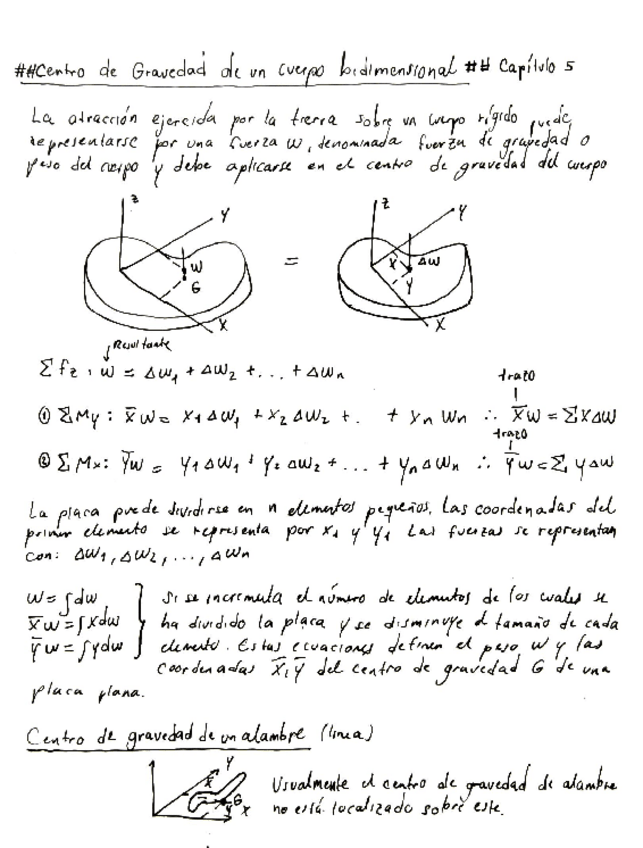 ##Centro de Gravedad de un cuerpo bidimensional ## Capítulo 5
La atracción ejercida por la tierra sobre un cuerpo rígido puede
representarse por una fuerza W, denominada fuerza de gravedad o
peso del cuerpo y debe aplicarse en el centro de gravedad del cuerpo
z
y
W
G
x
=
z
y
x
ΔW
y
x
Resultante
Σfz: W = ΔW₁ + ΔW₂ + ... + ΔWn
trazo
① ΣMy: x̄W = x₁ΔW₁ + x₂ΔW₂ + . + xn Wn ∴ x̄W = ΣxΔW
trazo
② ΣMx: ȳW = y₁ΔW₁ + y₂ΔW₂ + ... + ynΔWn ∴ ȳW = ΣyΔW
La placa puede dividirse en n elementos pequeños. Las coordenadas del
primer elemento se representa por x₁ y y₁ Las fuerzas se representan
con: ΔW₁, ΔW₂, ..., ΔWn
W = ∫dw
x̄W = ∫xdw
ȳW = ∫ydw
Si se incrementa el número de elementos de los cuales se
ha dividido la placa y se disminuye el tamaño de cada
elemento. Estas ecuaciones definen el peso W y las
coordenadas x̄, ȳ del centro de gravedad G de una
placa plana.
Centro de gravedad de un alambre (linea)
y
x̄
G
ȳ
x
Usualmente el centro de gravedad de alambre
no está localizado sobre este.